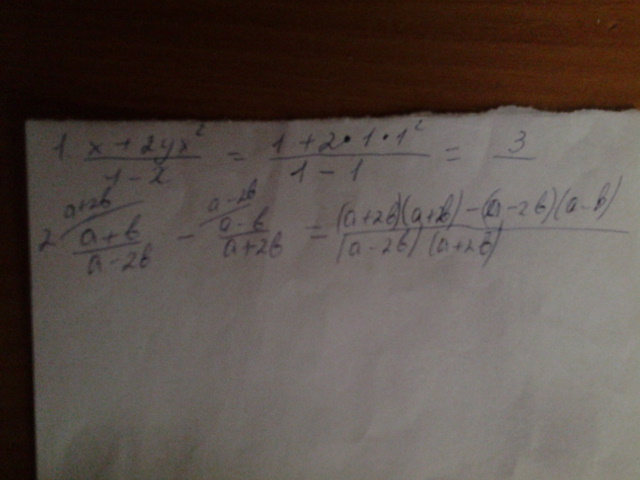 1 x + 2yx² / y - x = 1 + 2 • 1 • 1² / 1 - 1 = 3 /
2 a+2b a + b / a - 2b - a - 2b a - b / a + 2b = (a + 2b)(a + b) - (a - 2b)(a - b) / (a - 2b) (a + 2b)